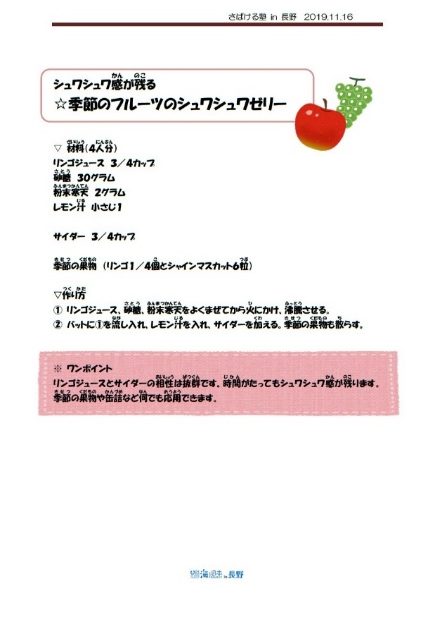 さばける塾 in 長野　2019.11.16
シュワシュワ感が残る
☆季節のフルーツのシュワシュワゼリー
▽ 材料(4人分)
リンゴジュース 3／4カップ
砂糖 30グラム
粉末寒天 2グラム
レモン汁 小さじ1
サイダー 3／4カップ
季節の果物 (リンゴ1／4個とシャインマスカット6粒)
▽作り方
① リンゴジュース、砂糖、粉末寒天をよくまぜてから火にかけ、沸騰させる。
② バットに①を流し入れ、レモン汁を入れ、サイダーを加える。季節の果物も散らす。
※ ワンポイント
リンゴジュースとサイダーの相性は抜群です。時間がたってもシュワシュワ感が残ります。
季節の果物や缶詰など何でも応用できます。
海 in 長野